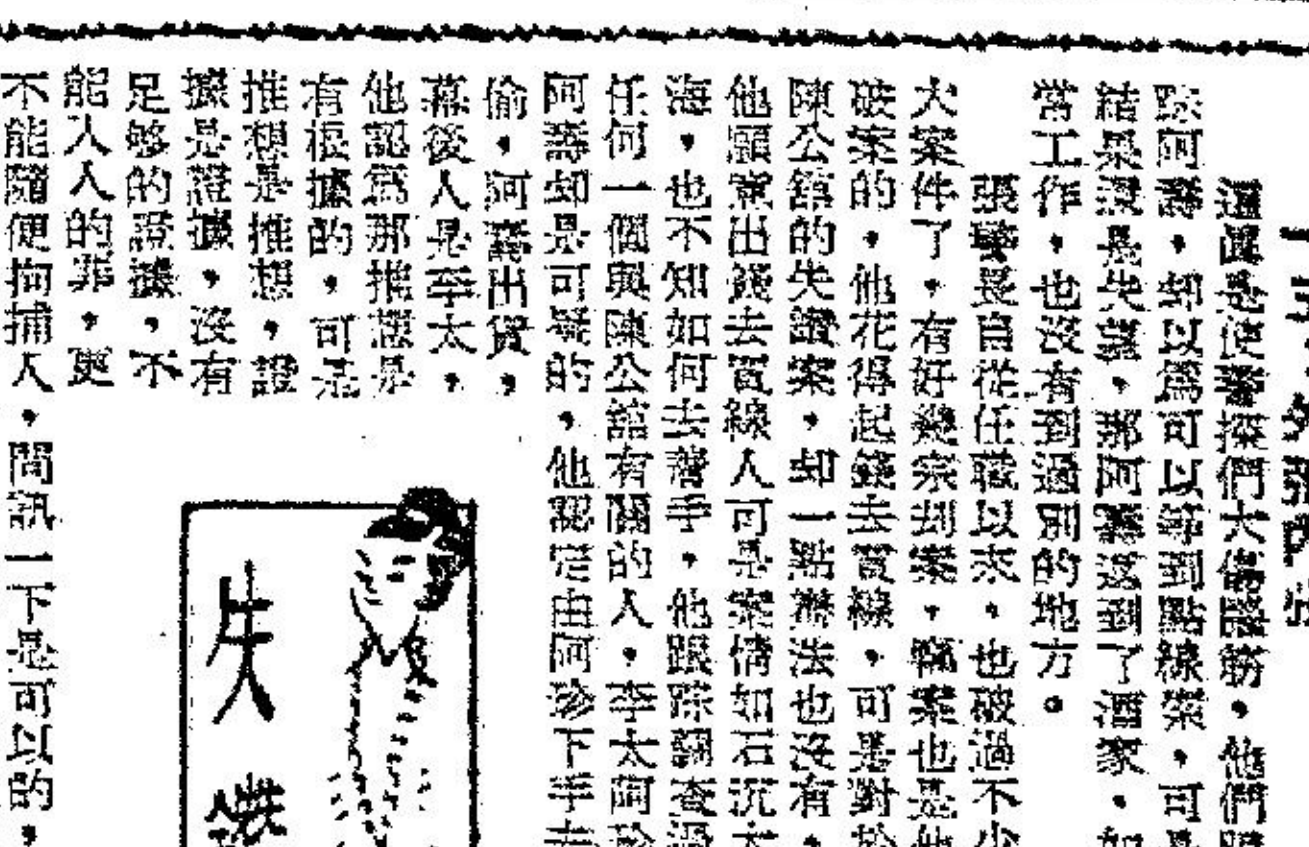 這眞是使警探們大傷腦筋。他們跟
踪阿壽，却以爲可以等到點線索，可是
結果還是失望，那阿壽返到了酒家，如
常工作，也沒有到過別的地方。
張警長自從任職以來，也破過不少
大案件了，有好幾宗刦案，竊案也是他
破案的，他花得起錢去買線，可是對於
陳公館的失鑽案，却一點辦法也沒有，
他願意出錢去買線人可是案情如石沉大
海，也不知如何去著手，他跟踪調查過
任何一個與陳公館有關的人，李太阿珍
阿壽却是可疑的，他認定由阿珍下手去
偷，阿壽出貨，
幕後人是李太，
他認爲那推想是
有根據的，可是
推想是推想，證
據是證據，沒有
足够的證據，不
能入人的罪，更
不能隨便拘捕人，問訊一下是可以的，
失